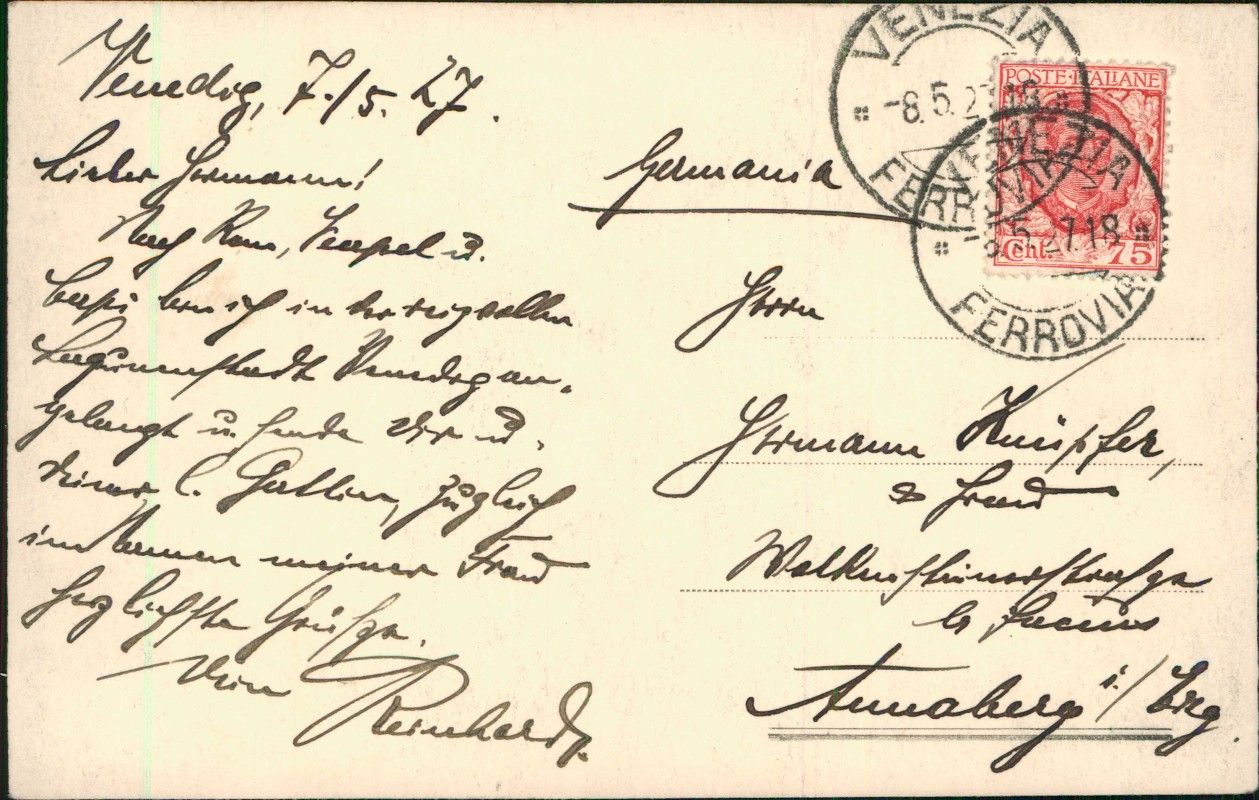 Venedig, 7./5. 27.
Lieber Hermann!
Nach Rom, Neapel u.
Capri bin ich in der reizvollen
Lagunenstadt Venedig an-
gelangt u. sende Dir u.
Deiner l. Gattin, zugleich
im Namen meiner Frau
herzlichste Grüsse.
Dein
Reinhard.
VENEZIA
-8.5.27.18
FERROVIA
POSTE·ITALIANE
Cent. 75
VENEZIA
-8.5.27.18
FERROVIA
Germania
Herrn
Hermann Knüpfer,
& Frau
strasse
b/
Annaberg i./Erzg.